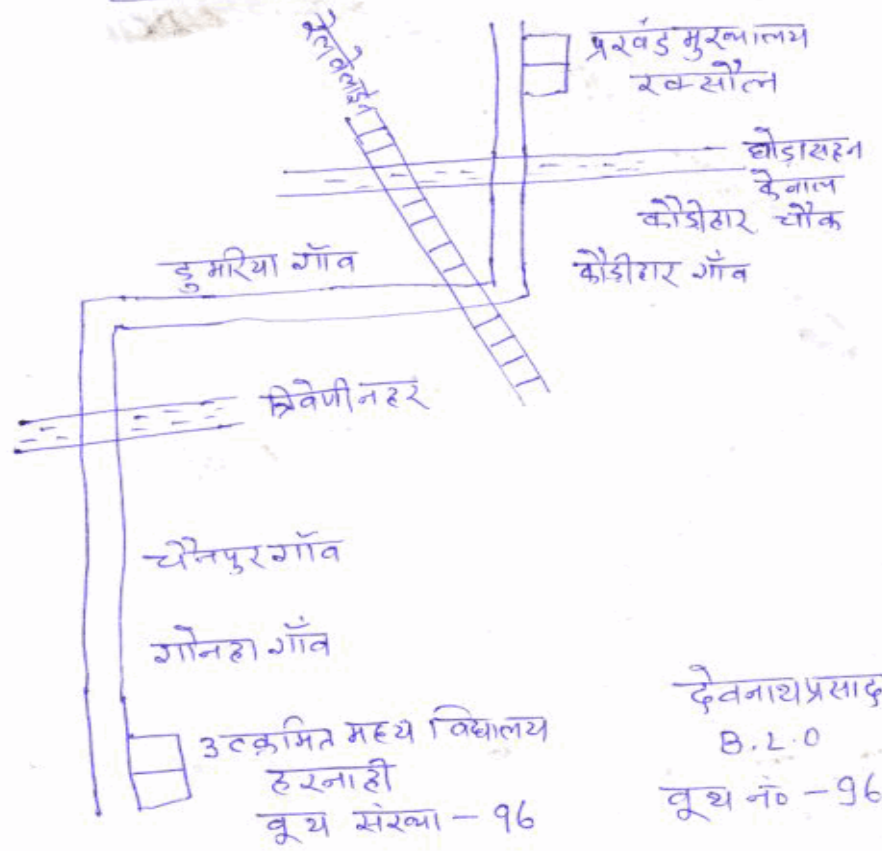 रेलवे लाईन
प्रखंड मुख्यालय
रक्सौल
घोड़ासहन
केनाल
कौड़ीहार चौक
डुमरिया गाँव
कौड़ीहार गाँव
त्रिवेणी नहर
चैनपुर गाँव
गोनहा गाँव
उत्क्रमित मध्य विद्यालय
हरनाही
बूथ संख्या - 96
देवनाथ प्रसाद
B.L.O
बूथ नं० - 96